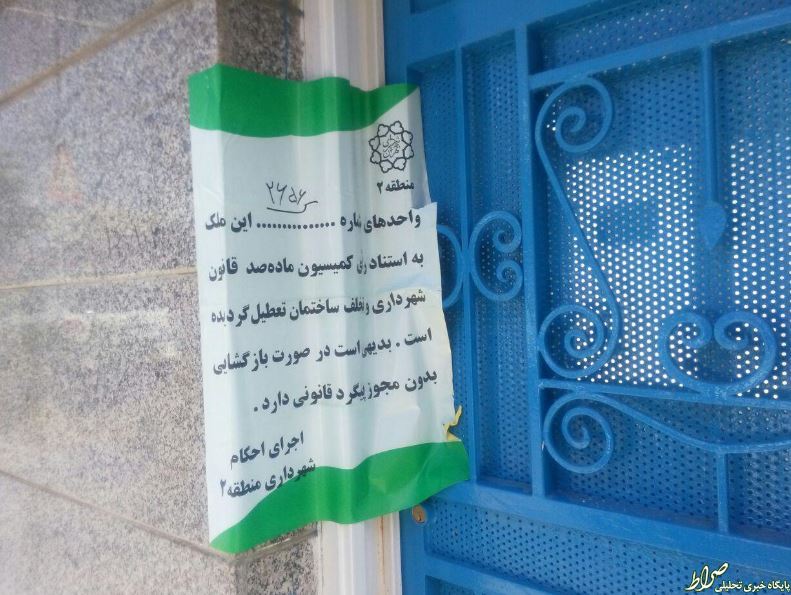 منطقه ۲
واحدهای شماره ............... این ملک
به استناد رای کمیسیون ماده‌صد قانون
شهرداری و تخلف ساختمان تعطیل گردیده
است . بدیهی‌است در صورت بازگشایی
بدون مجوز پیگرد قانونی دارد .
اجرای احکام
شهرداری منطقه۲
صراط
پایگاه خبری تحلیلی